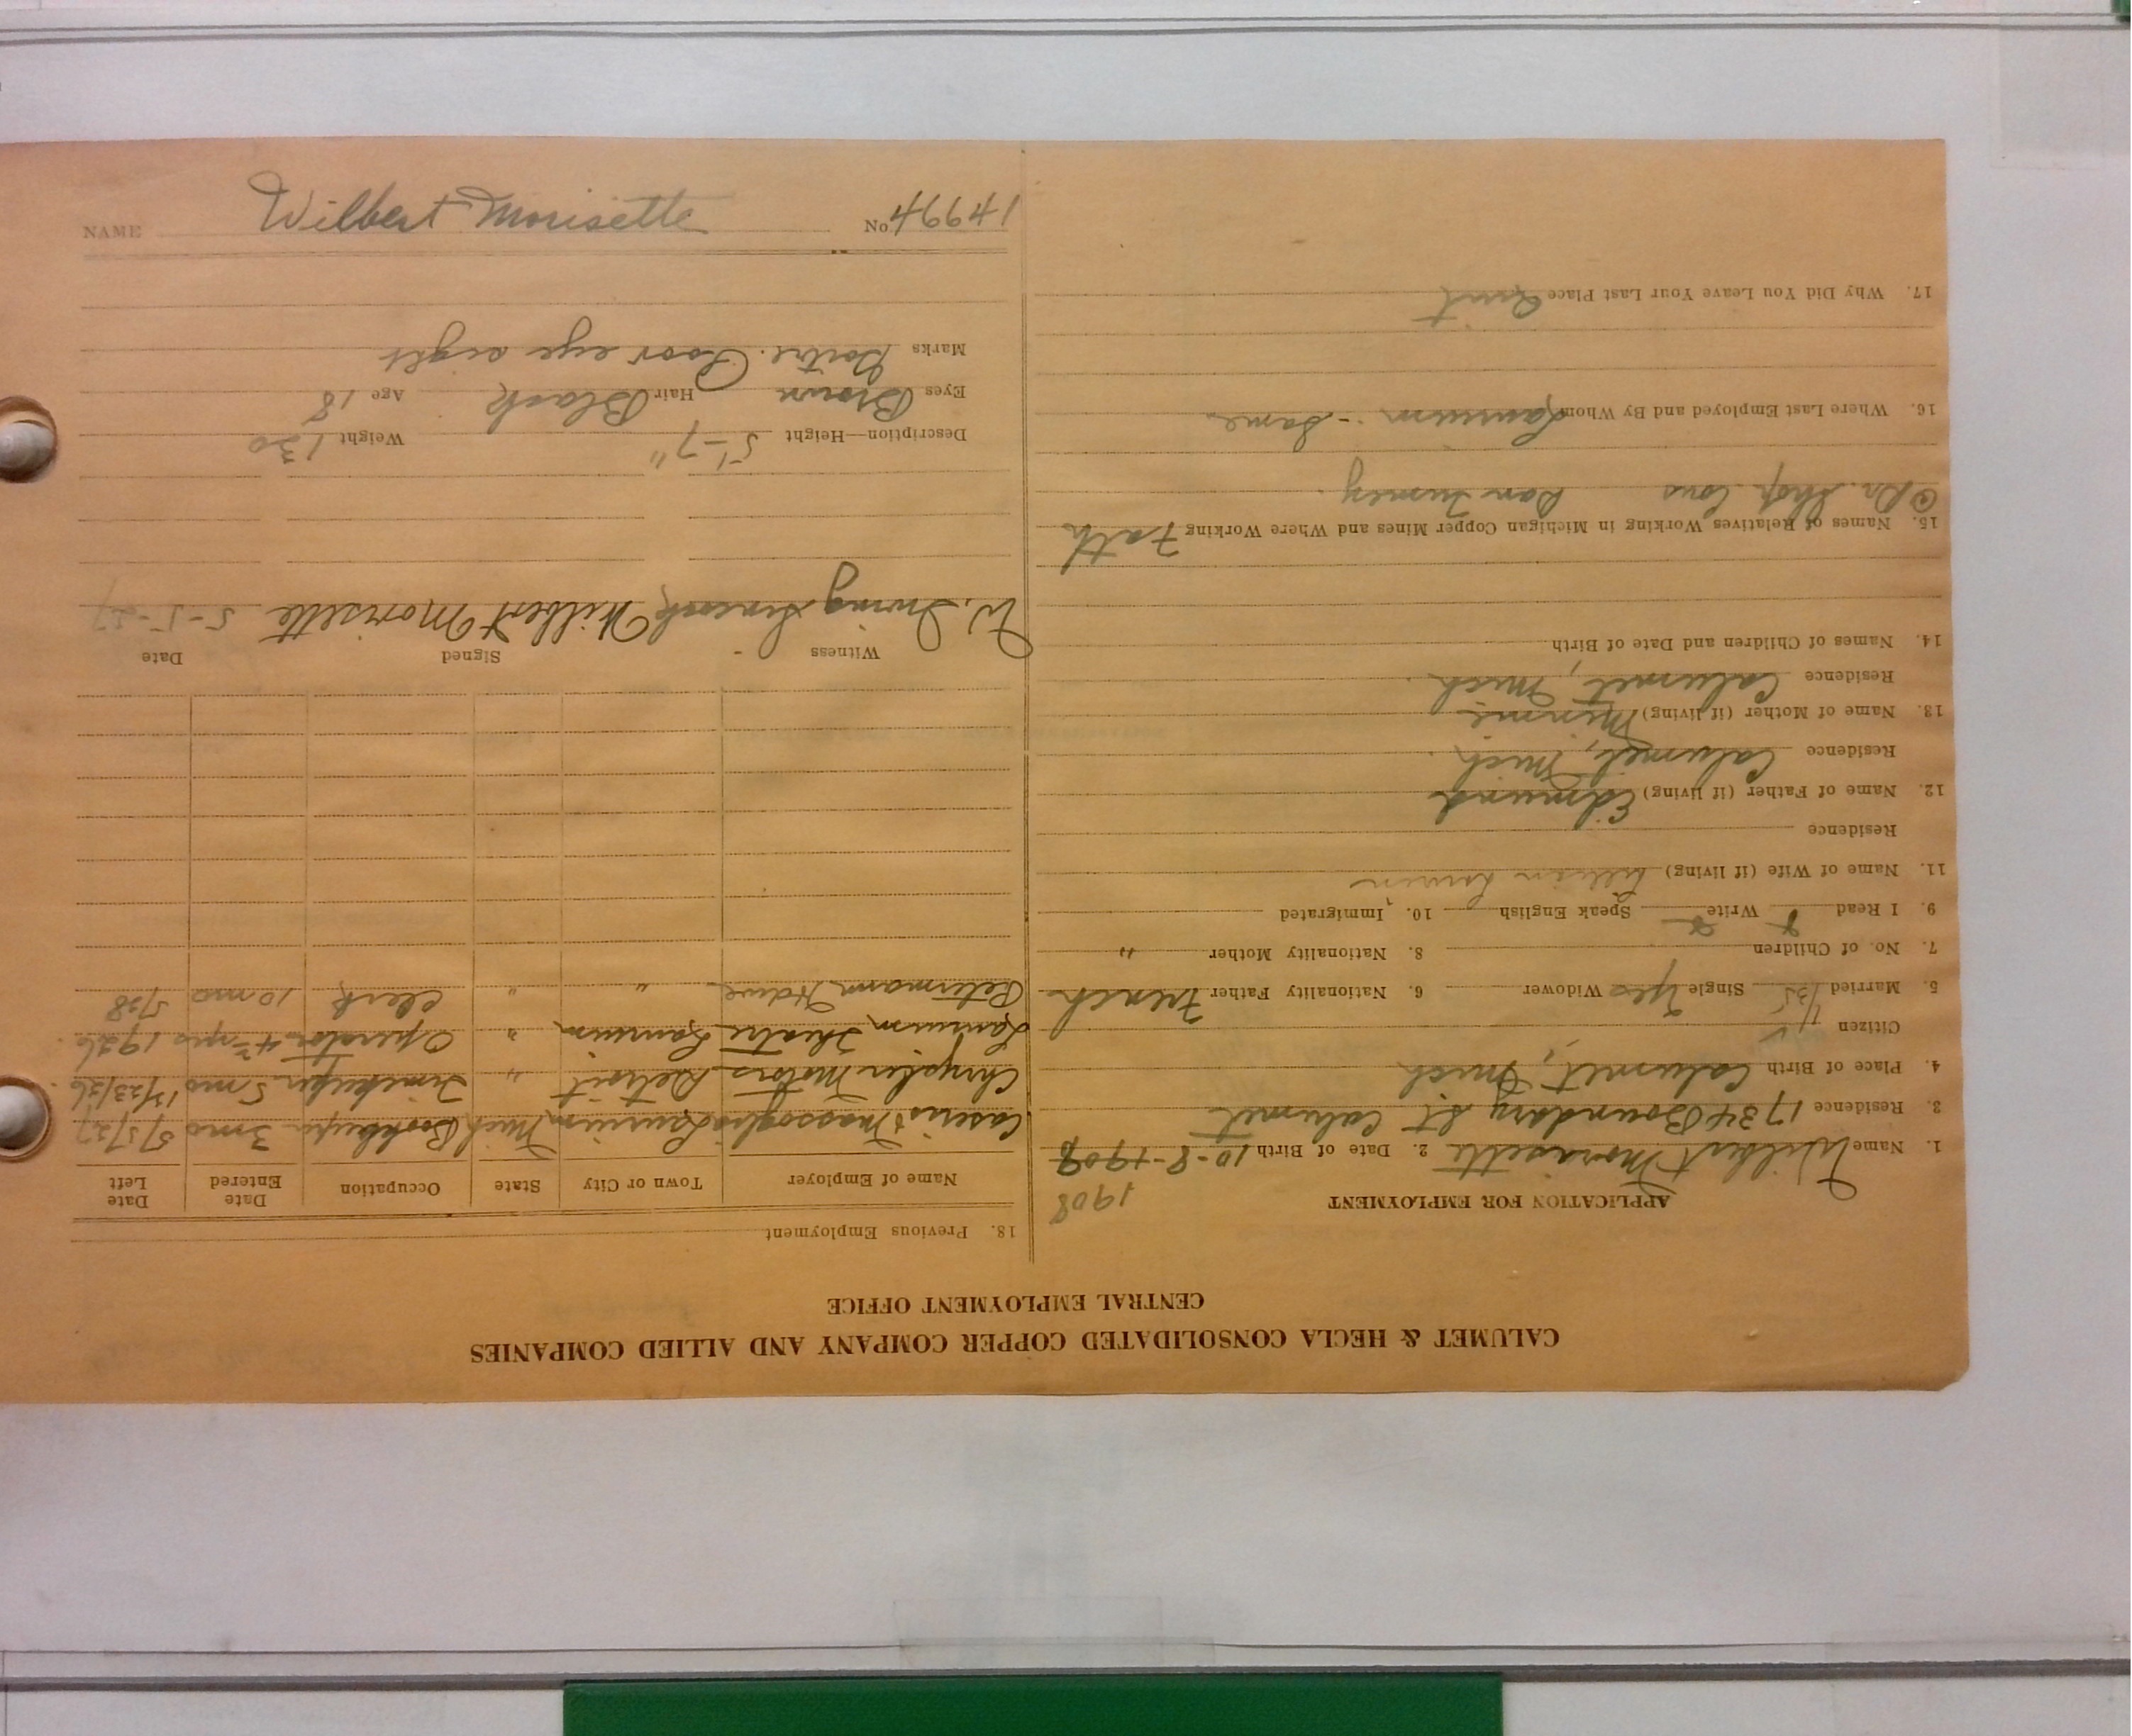 CALUMET & HECLA CONSOLIDATED COPPER COMPANY AND ALLIED COMPANIES
CENTRAL EMPLOYMENT OFFICE
APPLICATION FOR EMPLOYMENT
1908
1. Name Wilbert Morisette 2. Date of Birth 10-8-1908
3. Residence 1734 Boundary St Calumet
4. Place of Birth Calumet, Mich
Citizen
5. Married 1/35 Single Yes Widower 6. Nationality Father French
7. No. of Children 8. Nationality Mother "
9. I Read Write Speak English 10. Immigrated
11. Name of Wife (if living)
Residence
12. Name of Father (if living) Edmund
Residence Calumet, Mich.
13. Name of Mother (if living) Minnie
Residence Calumet, Mich.
14. Names of Children and Date of Birth
15. Names of Relatives Working in Michigan Copper Mines and Where Working Fath
Dr. Shop. Cous
16. Where Last Employed and By Whom Laurium - Same
17. Why Did You Leave Your Last Place Quit
18. Previous Employment
Name of Employer Town or City State Occupation Date Entered Date Left
Caserio & Massoglia Laurium Mich Bookkeeper 3 mo 5/5/27
Chrysler Motors Detroit " Timekeeper 5 mo 12/23/26
Laurium Theatre Laurium " Operator 4 yrs 1926
Petermann Hdwe " " Clerk 10 mo 5/28
Witness Signed Date
W. Irving Wilbert Morisette 5-5-27
Description—Height 5'-7" Weight 130
Eyes Brown Hair Black Age 18
Marks Goitre. Poor eye sight
NAME Wilbert Morisette No. 49941